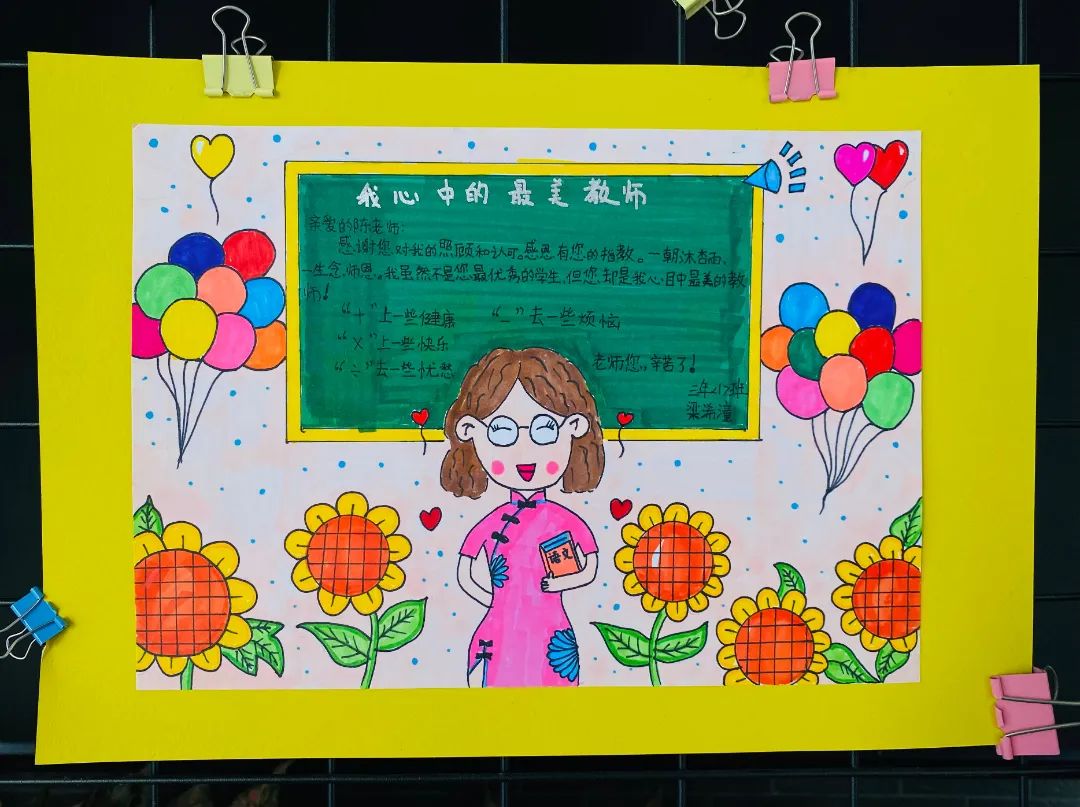 我心中的最美教师
亲爱的陈老师:
感谢您对我的照顾和认可。感恩有您的指教。一朝沐杏雨、
一生念师恩。我虽然不是您最优秀的学生,但您却是我心目中最美的教
师!
“+”上一些健康 “-”去一些烦恼
“×”上一些快乐
“÷”去一些忧愁 老师您,辛苦了!
三年(1)班
梁浠潼
语文